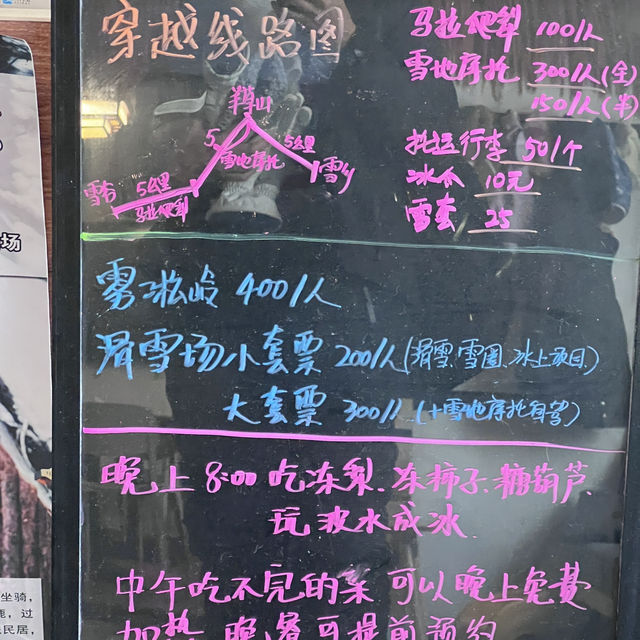 穿越线路图
马拉爬犁 100/人
雪地摩托 300/人(全)
150/人(半)
托运行李 50/个
冰爪 10元
雪套 25
羊草山
5公里
雪地摩托
雪乡
雪谷
5公里
马拉爬犁
雾凇岭 400/人
滑雪场小套票 200/人(滑雪.雪圈.冰上项目)
大套票 300/人 (+雪地摩托自驾)
晚上 8:00 吃冻梨.冻柿子.糖葫芦.
玩泼水成冰.
中午吃不完的菜 可以晚上免费
加热 晚餐可提前预约
场
坐骑,
鹿,过
民居,